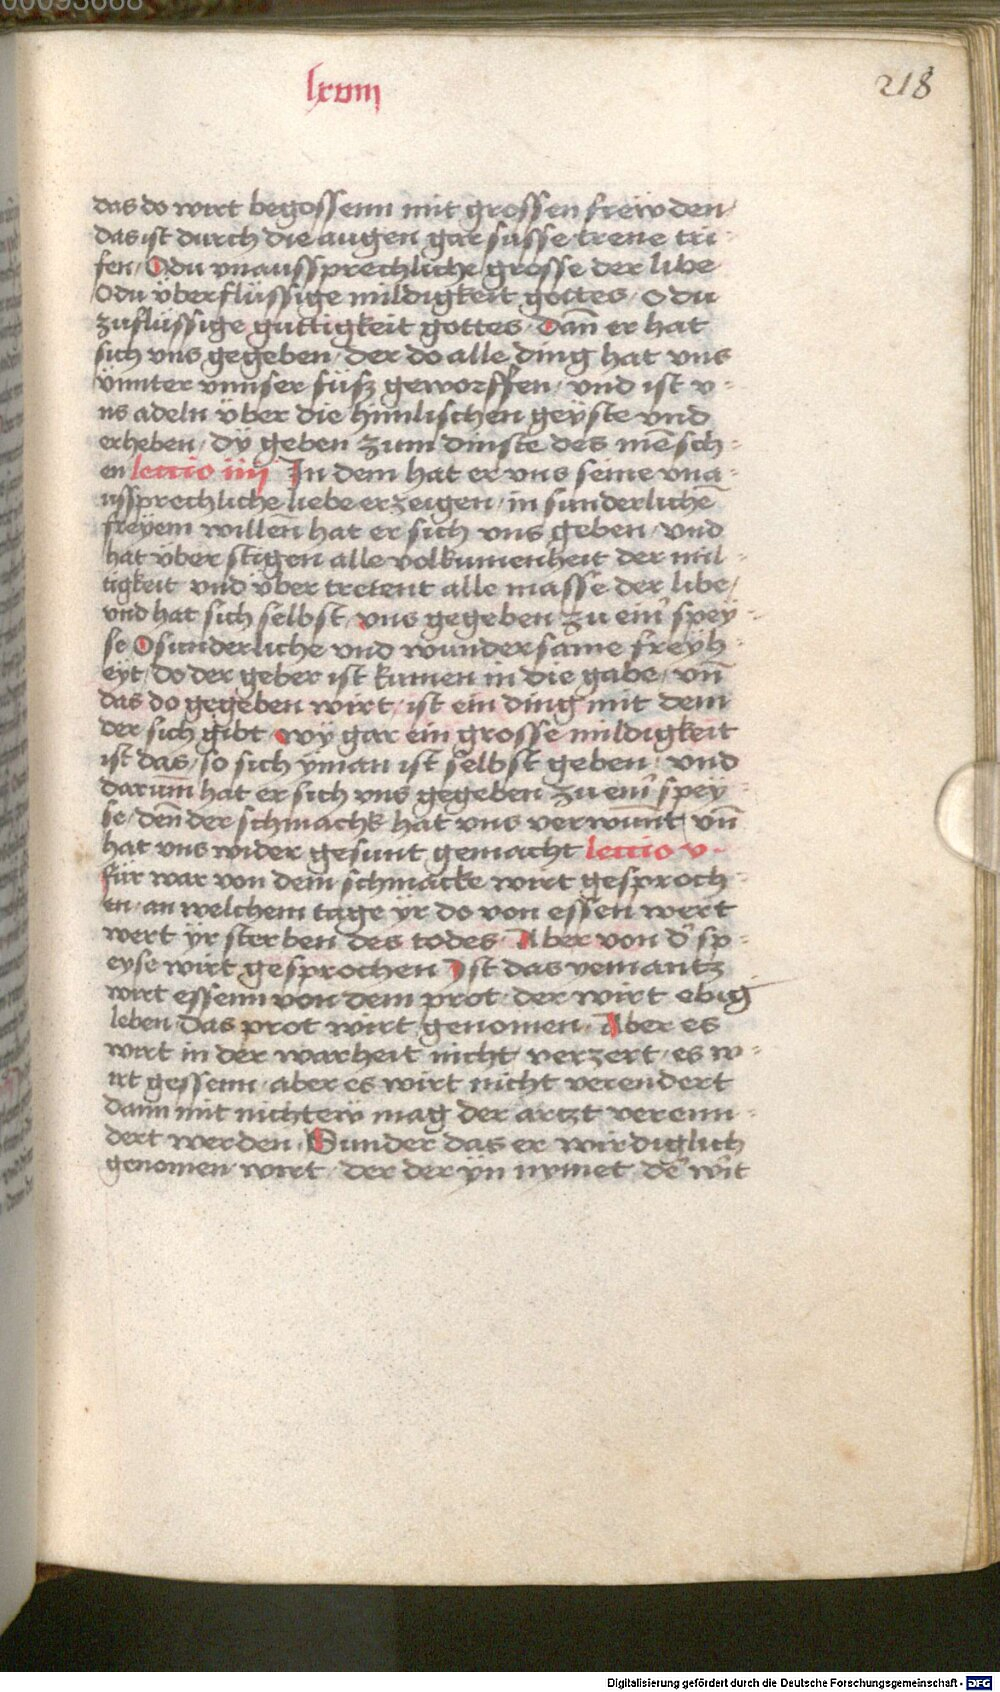 00093668
lxviij
218
das do wirt begossenn mit grossen freẅden /
das ist durch die augen gar susse trene tri -
fen / O du vnaussprechliche grosse der libe
O du v̈berflüssige mildigkeit gottes / O du
zuflüssige guttigkeit gottes / Dan̄ er hat
sich vns gegeben / der do alle ding hat vns
v̈nnter vnnser füsz geworffen / vnd ist v -
ns adeln v̈ber die himlischen geÿste vnd
erheben / dÿ geben zum dinste des mēsch -
en lectio iiij In dem hat er vns seine vna -
ussprechliche liebe erzeigen / in sunderlichē
freÿem willen hat er sich vns geben / vnd
hat v̈ber stigen alle volkumenheit der mil -
tigkeit vnd v̈ber tretent alle masse der libe /
vnd hat sich selbst vns gegeben zu ein̾ speÿ -
se O sunderliche vnd wundersame freÿh -
eyt / do der geber ist kumen in die gabe / vn̄
das do gegeben wirt / ist ein ding mit dem
der sich gibt / wÿ gar ein grosse mildigkeit
ist das / so sich ÿman ist selbst geben / vnd
darum̄ hat er sich vns gegeben zu ein̾ speÿ -
se / den̄ der schmachk hat vns verwunt vn̄
hat vns wider gesunt gemacht lectio v -
für war von dem schmacke wirt gesproch -
en / an welchem tage ÿr do von essen wert
wert ÿr sterben des todes / Aber von d̾ sp -
eyse wirt gesprochen Ist das yemantz
wirt essenn von dem prot / der wirt ebig
leben / das prot wirt genomen / Aber es
wirt in der warheit nicht verzert / es w -
irt gessenn / aber es wirt nicht verendert
dann mit nichteẅ mag der artzt verenn -
dert werden / Sunder das er wirdiglich
genomen wirt / der der ÿn nymet / de̾ wirt
Digitalisierung gefördert durch die Deutsche Forschungsgemeinschaft - DFG